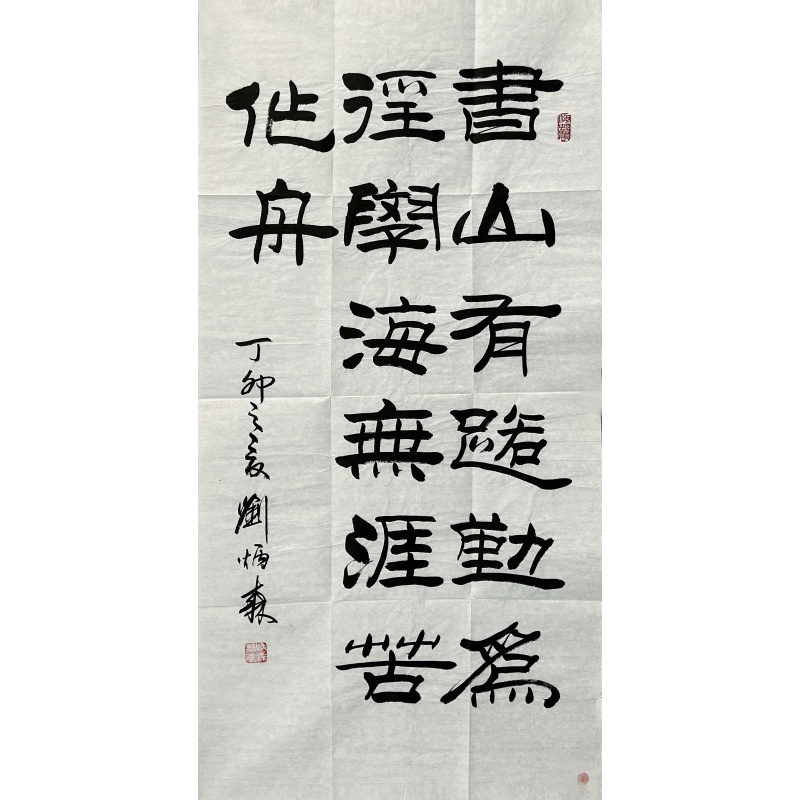 書山有路勤爲
徑學海無涯苦
作舟
丁卯之夏劉炳森